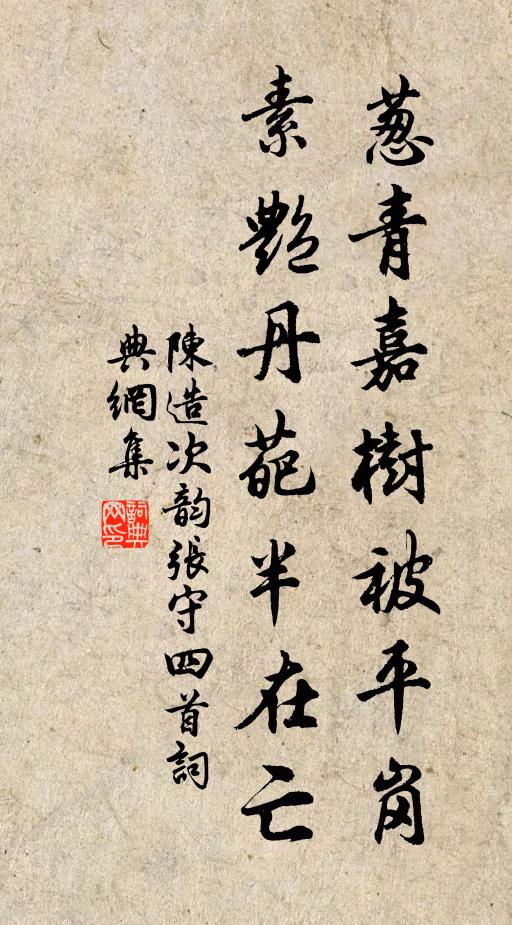 葱青嘉樹被平崗
素艷丹葩半在亡
陳造次韵張守四首詞
典網集
詞典網印